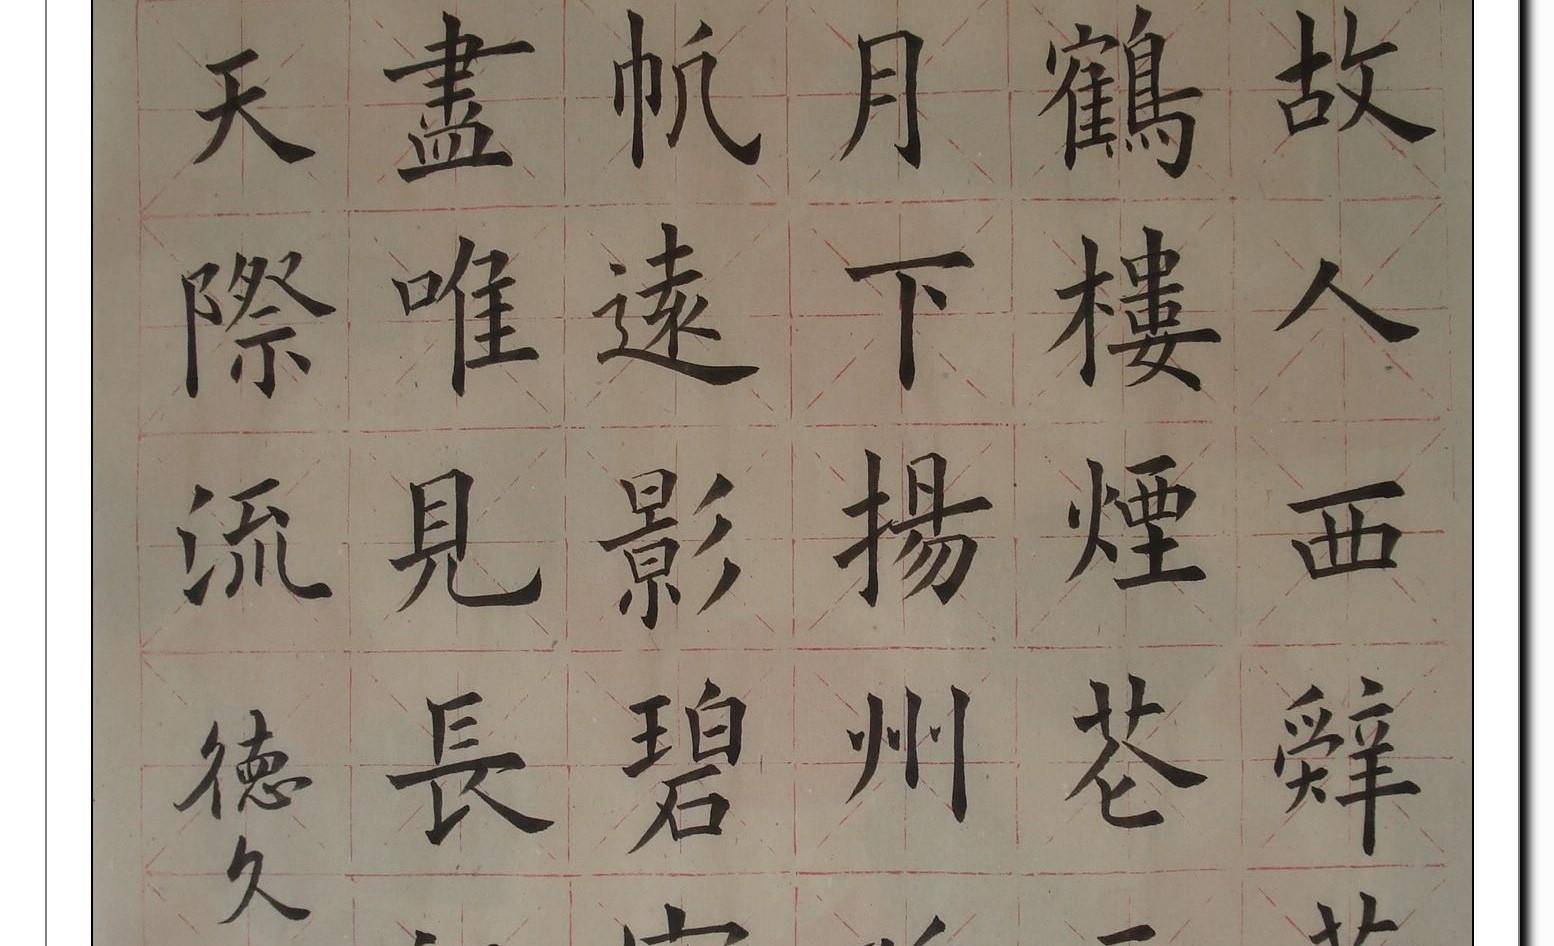 故人西辤
鶴樓煙花
月下揚州
帆遠影碧
盡唯見長
天際流
德久